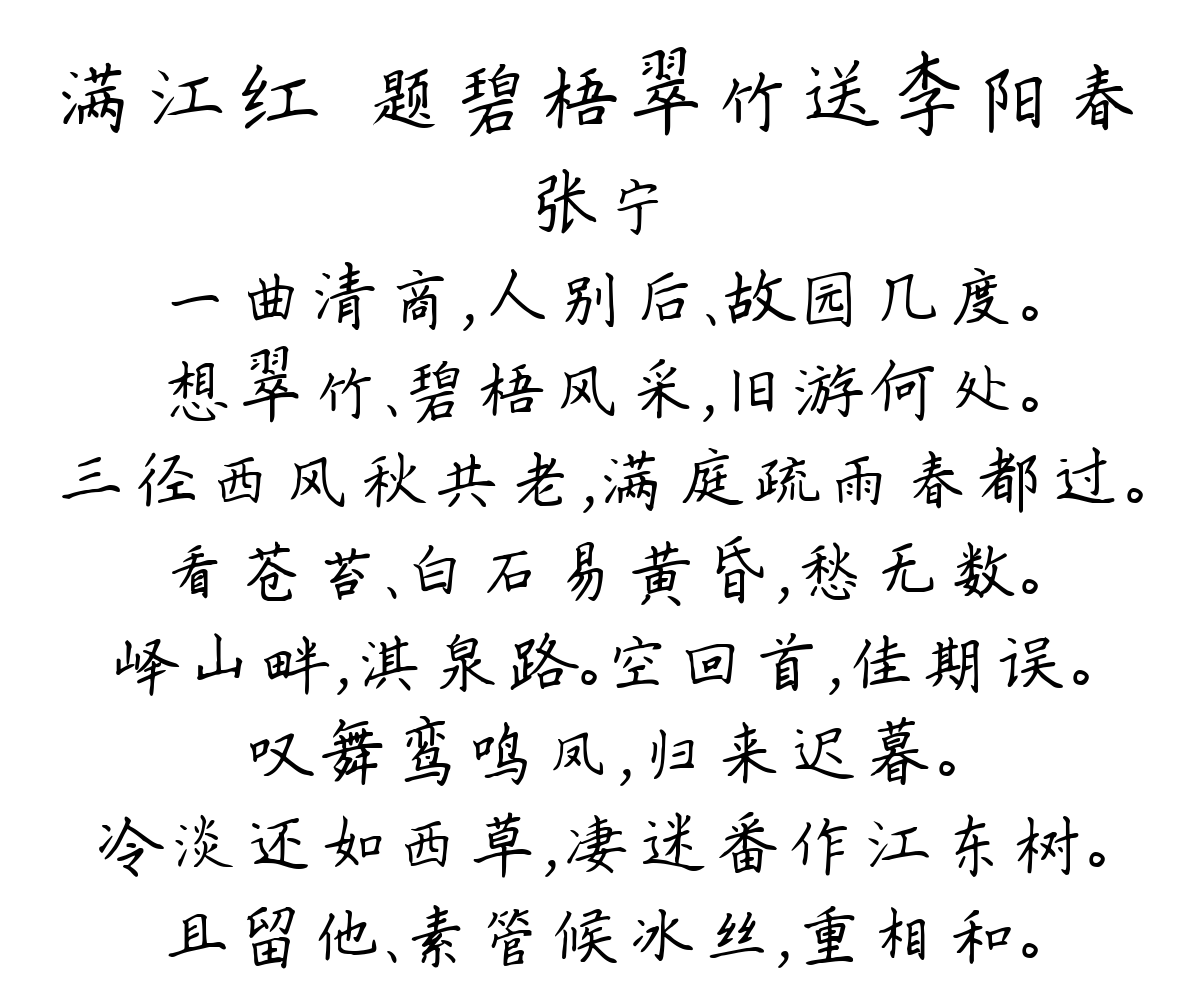 满江红 题碧梧翠竹送李阳春
张宁
一曲清商,人别后、故园几度。
想翠竹、碧梧风采,旧游何处。
三径西风秋共老,满庭疏雨春都过。
看苍苔、白石易黄昏,愁无数。
峄山畔,淇泉路。空回首,佳期误。
叹舞鸾鸣凤,归来迟暮。
冷淡还如西草,凄迷番作江东树。
且留他、素管候冰丝,重相和。